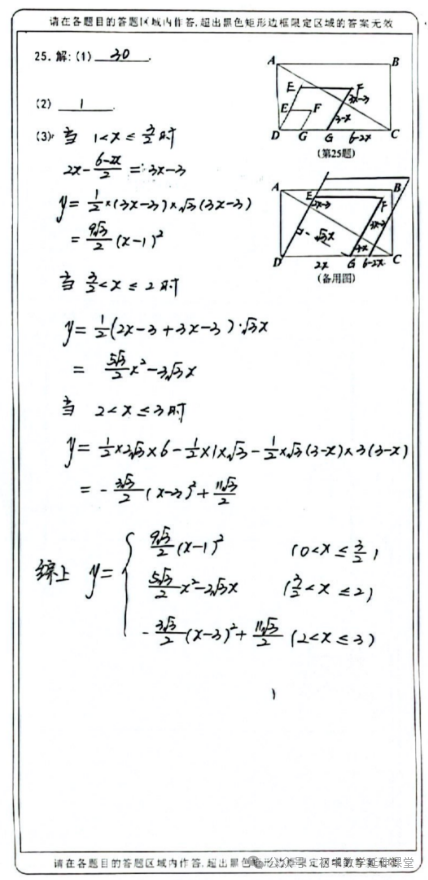 请在各题目的答题区域内作答,超出黑色矩形边框限定区域的答案无效
25.解:(1) 30 .
(2) 1
(3)· 当 1<x≤3/2时
2x-(6-2x)/2=3x-3
y=1/2×(3x-3)×√3(3x-3)
=9√3/2(x-1)²
当 3/2<x≤2时
y=1/2(2x-3+3x-3)·√3x
=5√3/2x²-3√3x
当 2<x≤3时
y=1/2×2√3×6-1/2×1×√3-1/2×√3(3-x)×3(3-x)
=-3√3/2(x-3)²+11√3/2
综上 y={
9√3/2(x-1)² (0<x≤3/2)
5√3/2x²-3√3x (3/2<x≤2)
-3√3/2(x-3)²+11√3/2 (2<x≤3)
A B
E F
3x-3
E F
3-x
D G G 6-2x C
(第25题)
A B
E F
3x-3
√3x
D 2x G 6-2x C
(备用图)
请在各题目的答题区域内作答,超出黑色矩形边框限定区域的答案无效